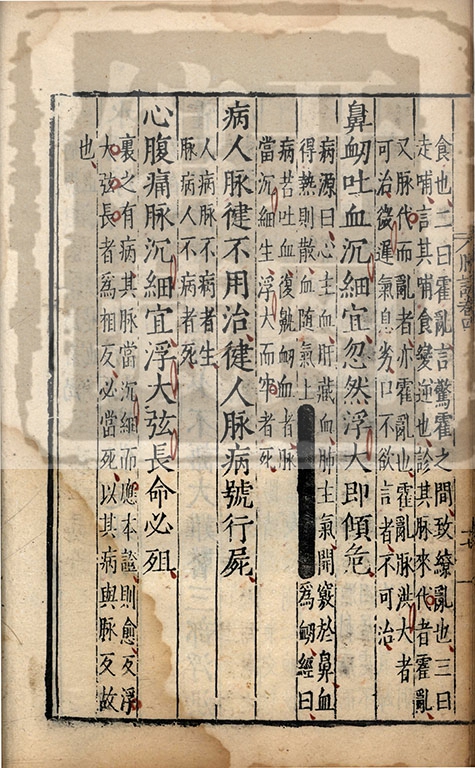 食也二曰霍亂言驚霍之間致繚亂也三曰
走哺言其哺食變逆也診其脉來代者霍亂
又脉代而亂者亦霍亂也霍亂脉洪大者
可治微遲氣息劣口不欲言者不可治
鼻衂吐血沉細宜忽然浮大即傾危
病源曰心主血肝藏血肺主氣開竅於鼻血
得熱則散血随氣上為衂經曰
病若吐血復鼽衂血者脉
當沉細生浮大而牢者死
病人脉徤不用治徤人脉病號行屍
人病脉不病者生
脉病人不病者死
心腹痛脉沉細宜浮大弦長命必殂
裏之有病其脉當沉細而應本證則愈反浮
大弦長者為相反必當死以其病與脉反故
也